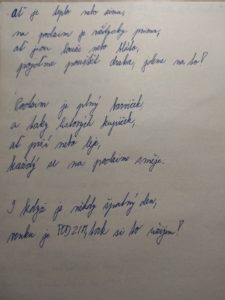 ať je teplo nebo zima,
na podzim je vždycky prima,
ať jsou louže nebo bláto,
pojďme pouštět draka, jdeme na to!
Podzim je plný barviček,
a taky listových kupiček,
ať prší nebo leje,
každý se na podzim směje.
I když je někdy špatný den,
venku je PODZIM, tak si ho užijem!